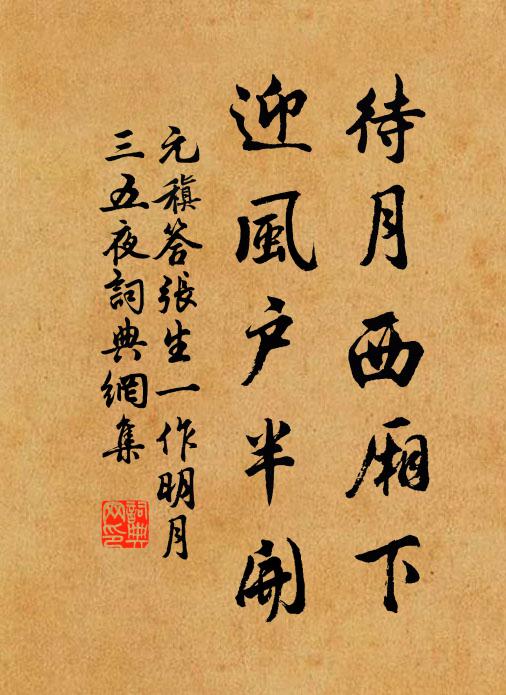 待月西厢下
迎風户半開
元稹答張生一作明月
三五夜詞典網集
詞典
网印